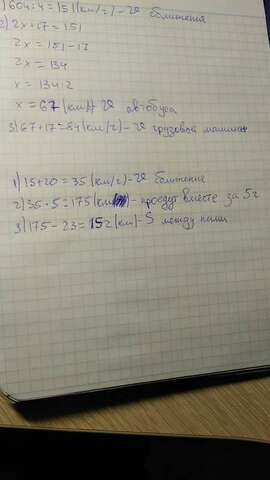 1) 604:4=151(км/г)-V ближения
2) 2x+17=151
2x=151-17
2x=134
x=134:2
x=67(км/г) V автобуса
3) 67+17=84(км/г)-V грузовой машины
1) 15+20=35(км/г)-V ближение
2) 35·5=175(км)-проедут вместе за 5г
3) 175-23=152(км)-S между ними